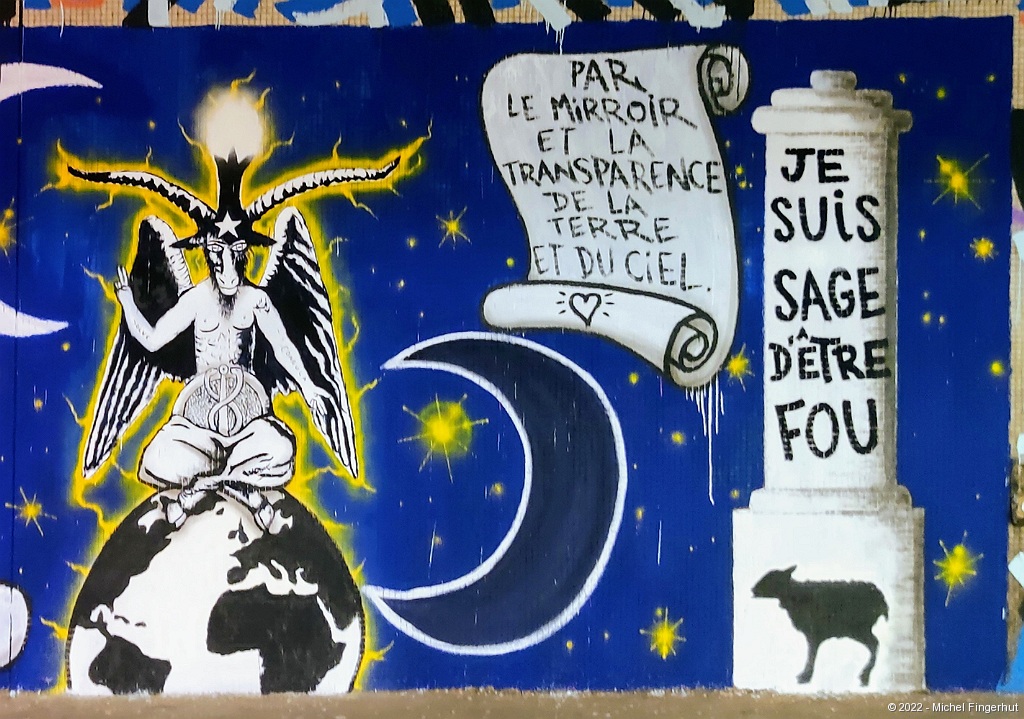 PAR
LE MiRROIR
ET LA
TRANSPARENCE
DE LA
TERRE
ET DU CiEL.
JE
SUiS
SAGE
D'ÊTRE
FOU
© 2022 - Michel Fingerhut